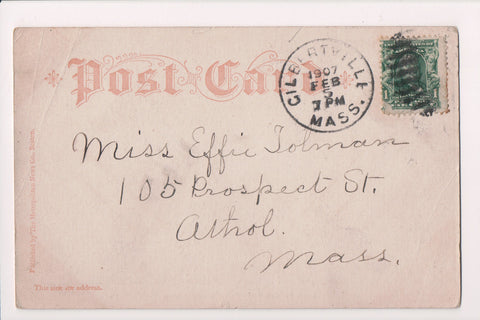 Post Card.
GILBERTVILLE
1907
FEB
5
7 PM
MASS.
Miss Effie Tolman
105 Prospect St.
Athol.
Mass.
Published by The Metropolitan News Co., Boston.
This side for address.